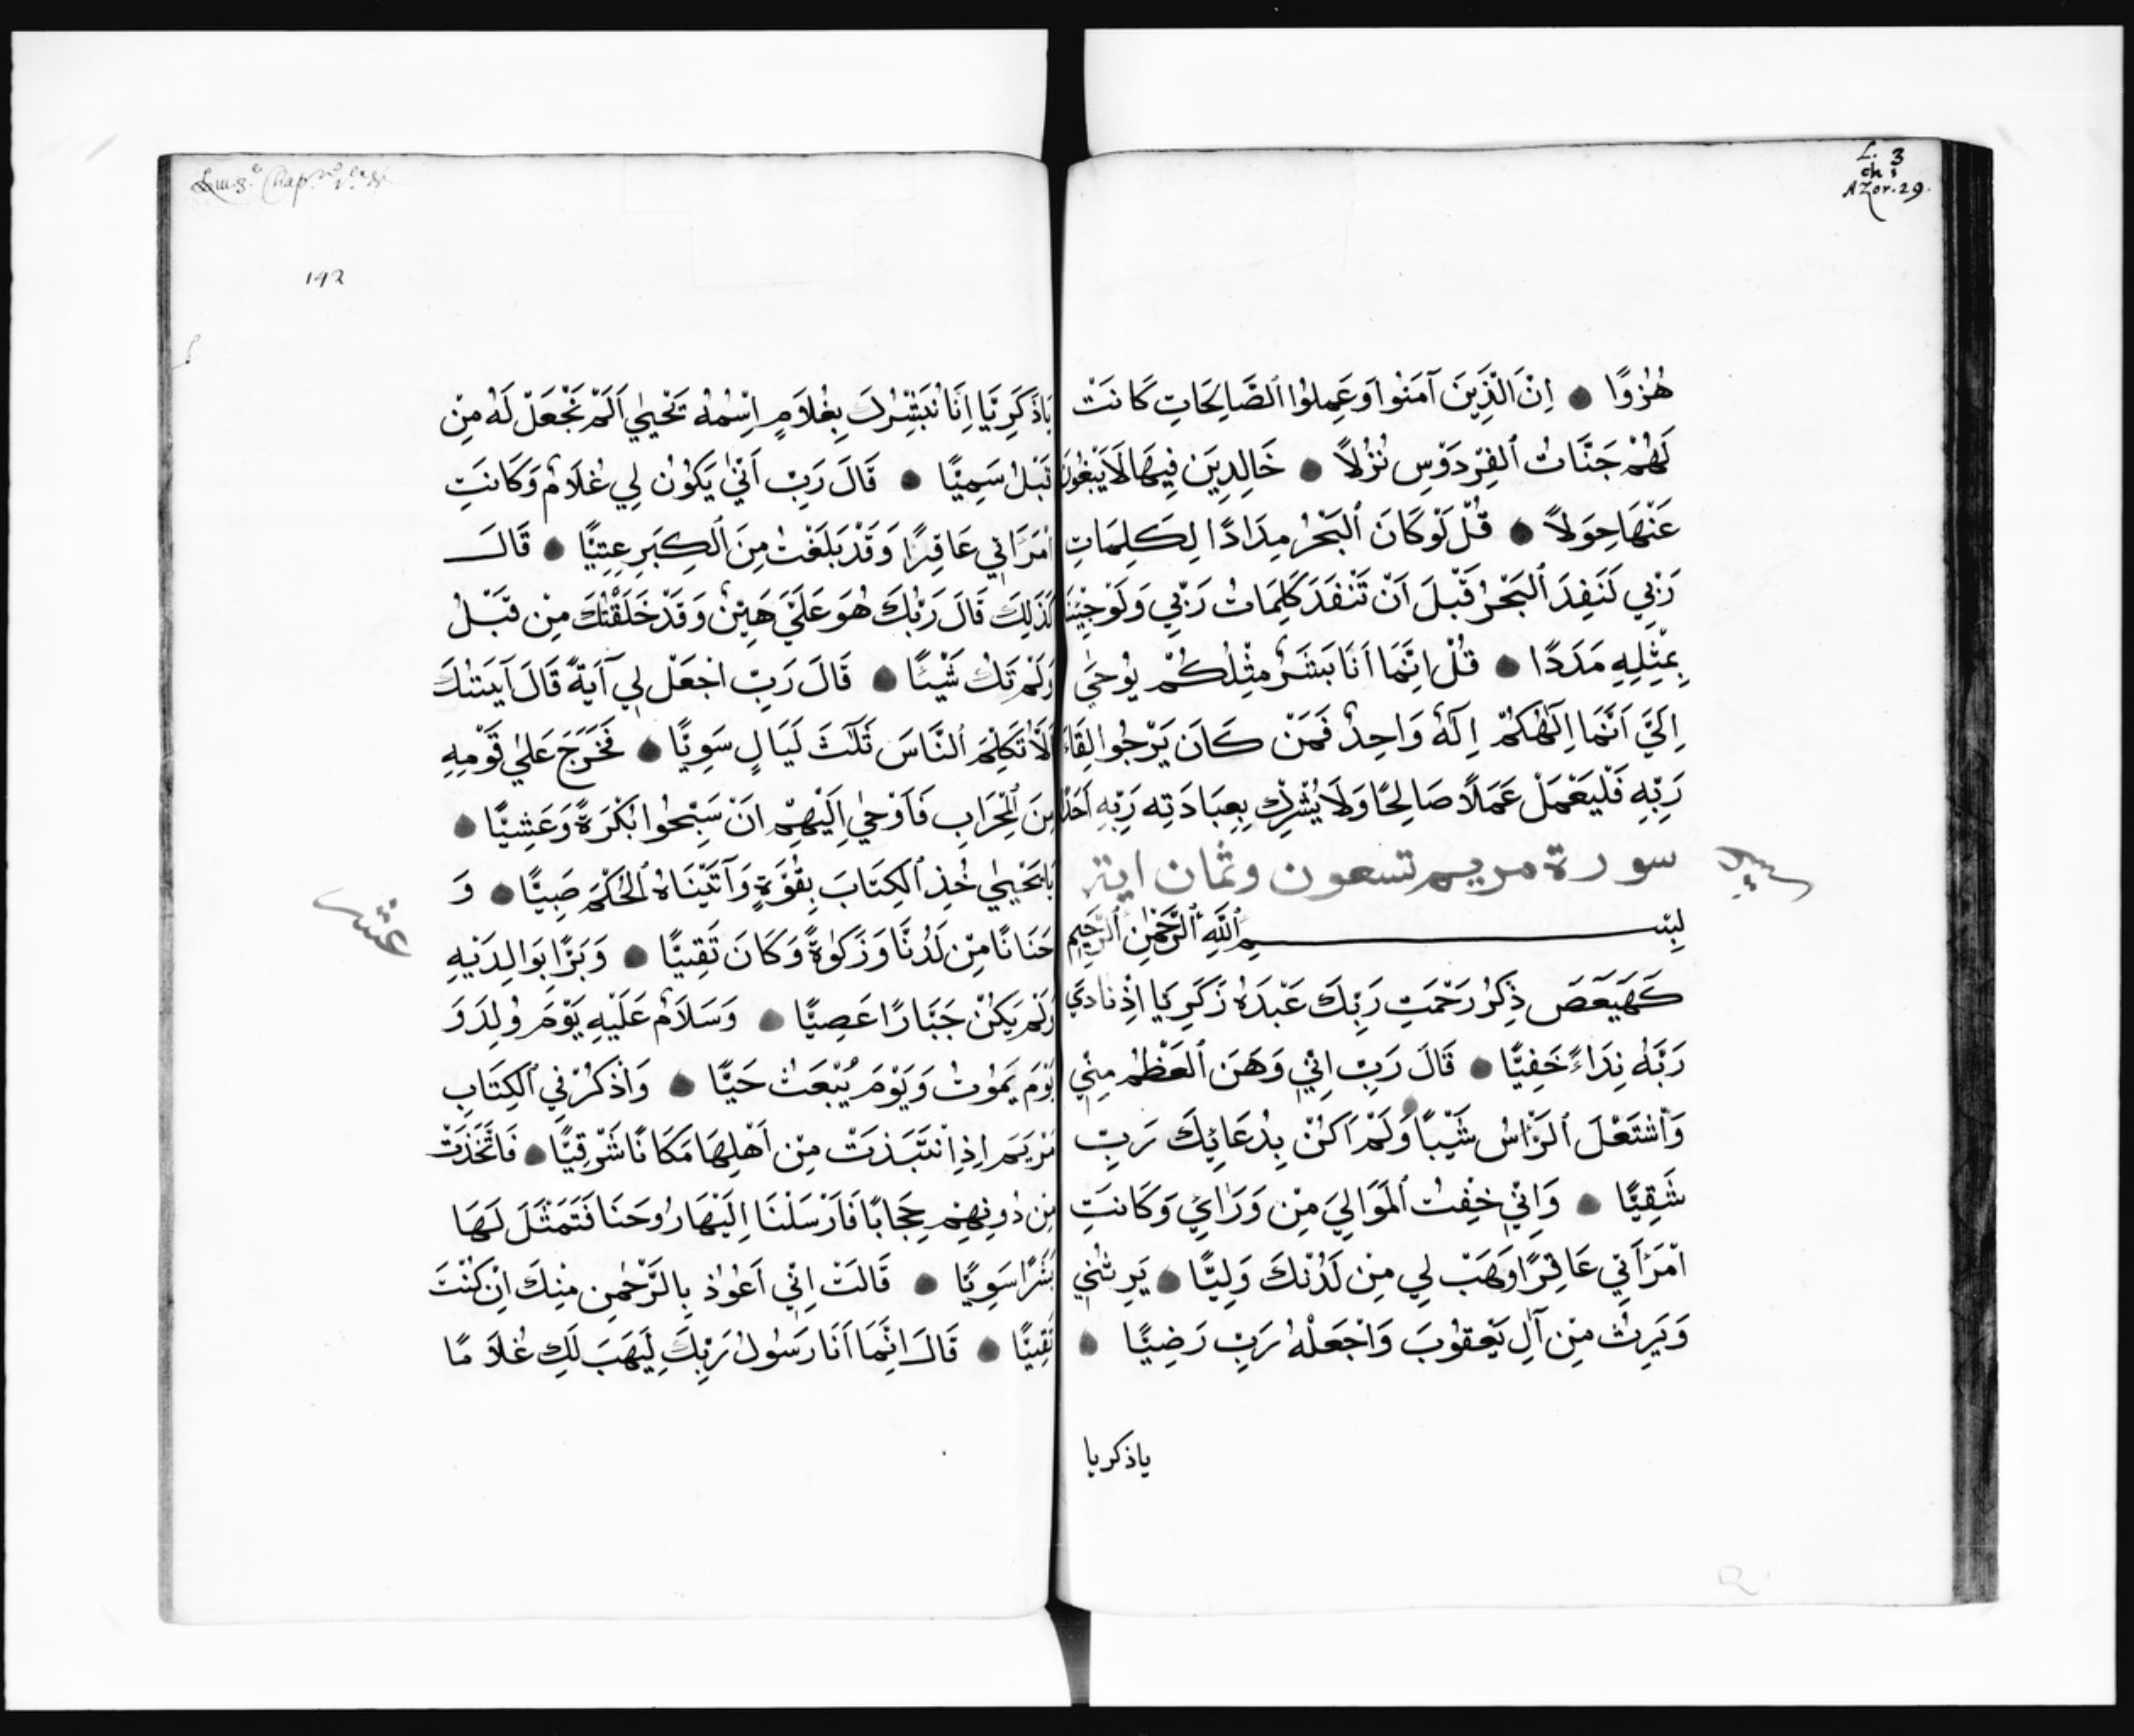 L. 3
ch 1
AZor. 29.
هُزُوًا اِنَ الَّذِينَ آمَنُوا وَعَمِلُوا ٱلصَّالِحَاتِ كَانَتْ
لَهُمْ جَنَّاتُ ٱلفِرْدَوْسِ نُزُلاً خَالِدِينَ فِيهَا لَا يَبْغُونَ
عَنْهَا حِوَلاً قُلْ لَوْ كَانَ ٱلبَحْرُ مِدَادًا لِكَلِمَاتِ
رَبِّي لَنَفِدَ ٱلبَحْرُ قَبْلَ اَنْ تَنْفَدَ كَلِمَاتُ رَبِّي وَلَوْ جِيْنَا
بِمِثْلِهِ مَدَدًا قُلْ اِنَّمَا اَنَا بَشَرٌ مِثْلُكُمْ يُوحَي
اِلَيَّ اَنَّمَا اِلَهُكُمْ اِلَهٌ وَاحِدٌ فَمَنْ كَانَ يَرْجُوا لِقَاءَ
رَبِّهِ فَلْيَعْمَلْ عَمَلًا صَالِحًا وَلَا يُشْرِكْ بِعِبَادَتِه رَبِّهِ اَحَدًا
سورة مريم تسعون وثمان ايتر
بِسْمِ ٱللَّهِ ٱلرَّحْمٰنِ ٱلرَّحِيمِ
كَهَيَعَصَ ذِكْرُ رَحْمَتِ رَبِّكَ عَبْدَهُ زَكَرِيَا اِذْ نَادَي
رَبَّهُ نِدَاءً خَفِيًّا قَالَ رَبِّ اِنِّي وَهَنَ ٱلعَظْمُ مِنِّي
وَٱشْتَعَلَ ٱلرَّاْسُ شَيْبًا وَلَمْ اَكُنْ بِدُعَائِكَ رَبِّ
شَقِيًّا وَاِنِّي خِفْتُ ٱلمَوَالِيَ مِنْ وَرَائِي وَكَانَتِ
اْمْرَاَتِي عَاقِرًا وَهَبْ لِي مِنْ لَدُنْكَ وَلِيًّا يَرِثُنِي
وَيَرِثُ مِنْ آلِ يَعْقُوبَ وَاْجْعَلْهُ رَبِّ رَضِيًّا
ياذكريا
142
يَاذَكَرِيَّا اِنَّا نُبَشِّرُكَ بِغُلَامٍ اِسْمُهُ يَحْيٰي اَلَمْ نَجْعَلْ لَهُ مِنْ
قَبْلُ سَمِيًّا قَالَ رَبِّ اَنّٰي يَكُوْنُ لِي غُلَامٌ وَكَانَتِ
اْمْرَاَتِي عَاقِرًا وَقَدْ بَلَغْتُ مِنَ ٱلْكِبَرِ عِتِيًّا قَالَ
كَذَلِكَ قَالَ رَبُّكَ هُوَ عَلَيَّ هَيِّنٌ وَقَدْ خَلَقْتُكَ مِنْ قَبْلُ
وَلَمْ تَكُ شَيْئًا قَالَ رَبِّ اْجْعَلْ لِي آيَةً قَالَ آيَتُكَ
اَلَّا تُكَلِّمَ ٱلنَّاسَ ثَلٰثَ لَيَالٍ سَوِيًّا فَخَرَجَ عَلٰي قَوْمِهِ
مِنَ ٱلْمِحْرَابِ فَاَوْحٰي اِلَيْهِمْ اَنْ سَبِّحُوا بُكْرَةً وَعَشِيًّا
يَا يَحْيٰي خُذِ ٱلكِتَابَ بِقُوَّةٍ وَآتَيْنَاهُ ٱلحُكْمَ صَبِيًّا وَ
حَنَانًا مِنْ لَدُنَّا وَزَكٰوةً وَكَانَ تَقِيًّا وَبَرًّا بِوَالِدَيْهِ
وَلَمْ يَكُنْ جَبَّارًا عَصِيًّا وَسَلَامٌ عَلَيْهِ يَوْمَ وُلِدَ وَ
يَوْمَ يَمُوْتُ وَيَوْمَ يُبْعَثُ حَيًّا وَاْذْكُرْ فِي ٱلكِتَابِ
مَرْيَمَ اِذِ اْنْتَبَذَتْ مِنْ اَهْلِهَا مَكَانًا شَرْقِيًّا فَاتَّخَذَتْ
مِنْ دُونِهِمْ حِجَابًا فَاَرْسَلْنَا اِلَيْهَا رُوحَنَا فَتَمَثَّلَ لَهَا
بَشَرًا سَوِيًّا قَالَتْ اِنِّي اَعُوْذُ بِالرَّحْمٰنِ مِنْكَ اِنْ كُنْتَ
تَقِيًّا قَالَ اِنَّمَا اَنَا رَسُولُ رَبِّكَ لِيَهَبَ لَكِ غُلَامًا
عشر